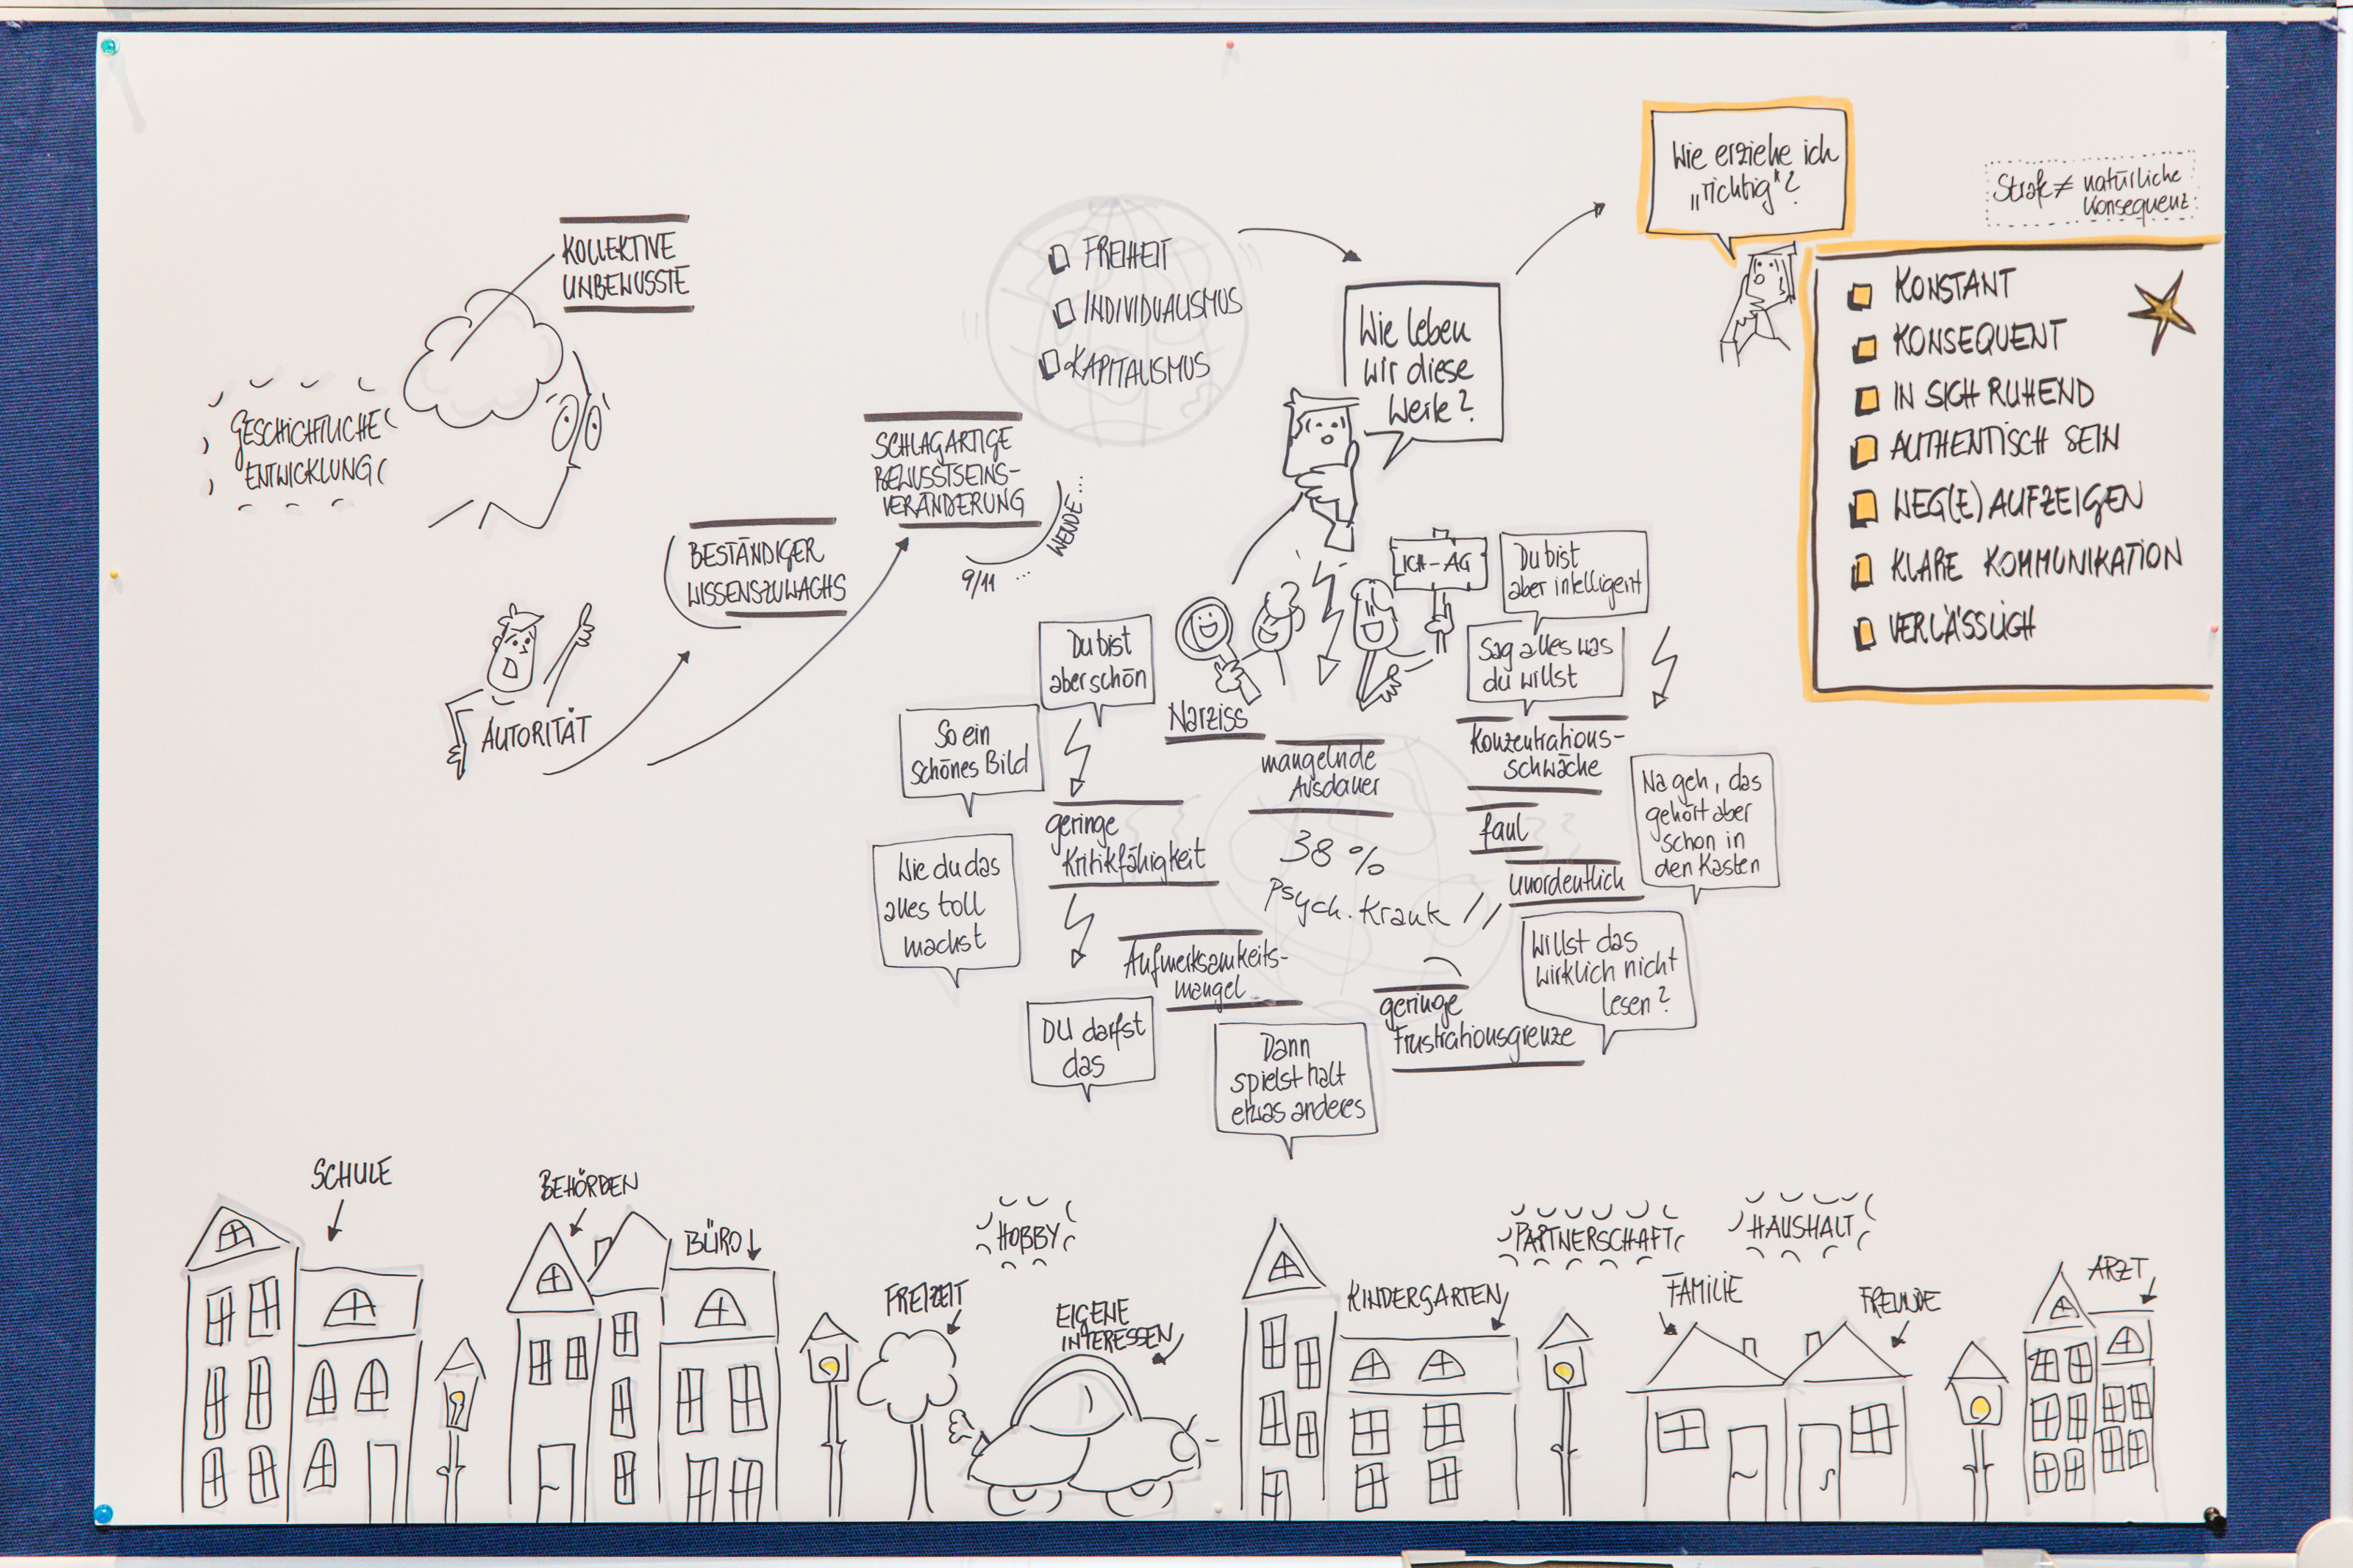 KOLLEKTIVE
UNBEWUSSTE
GESCHICHTLICHE
ENTWICKLUNG
AUTORITÄT
BESTÄNDIGER
WISSENSZUWACHS
SCHLAGARTIGE
BEWUSSTSEINS-
VERÄNDERUNG
9/11 ...
WENDE...
FREIHEIT
INDIVIDUALISMUS
KAPITALISMUS
Wie leben
wir diese
Werte?
Wie erziehe ich
„richtig"?
Strafe ≠ natürliche
Konsequenz
KONSTANT
KONSEQUENT
IN SICH RUHEND
AUTHENTISCH SEIN
WEG(E) AUFZEIGEN
KLARE KOMMUNIKATION
VERLÄSSLICH
ICH-AG
Du bist
aber intelligent
Sag alles was
du willst
Du bist
aber schön
Narziss
So ein
schönes Bild
mangelnde
Ausdauer
Konzentrations-
schwäche
geringe
Kritikfähigkeit
38 %
Psych. Krank
faul
unordentlich
Na geh, das
gehört aber
schon in
den Kasten
Wie du das
alles toll
machst
Aufmerksamkeits-
mangel
Willst das
wirklich nicht
lesen?
geringe
Frustrationsgrenze
DU darfst
das
Dann
spielst halt
etwas anderes
SCHULE
BEHÖRDEN
BÜRO
HOBBY
FREIZEIT
EIGENE
INTERESSEN
KINDERGARTEN
PARTNERSCHAFT
HAUSHALT
FAMILIE
FREUNDE
ARZT